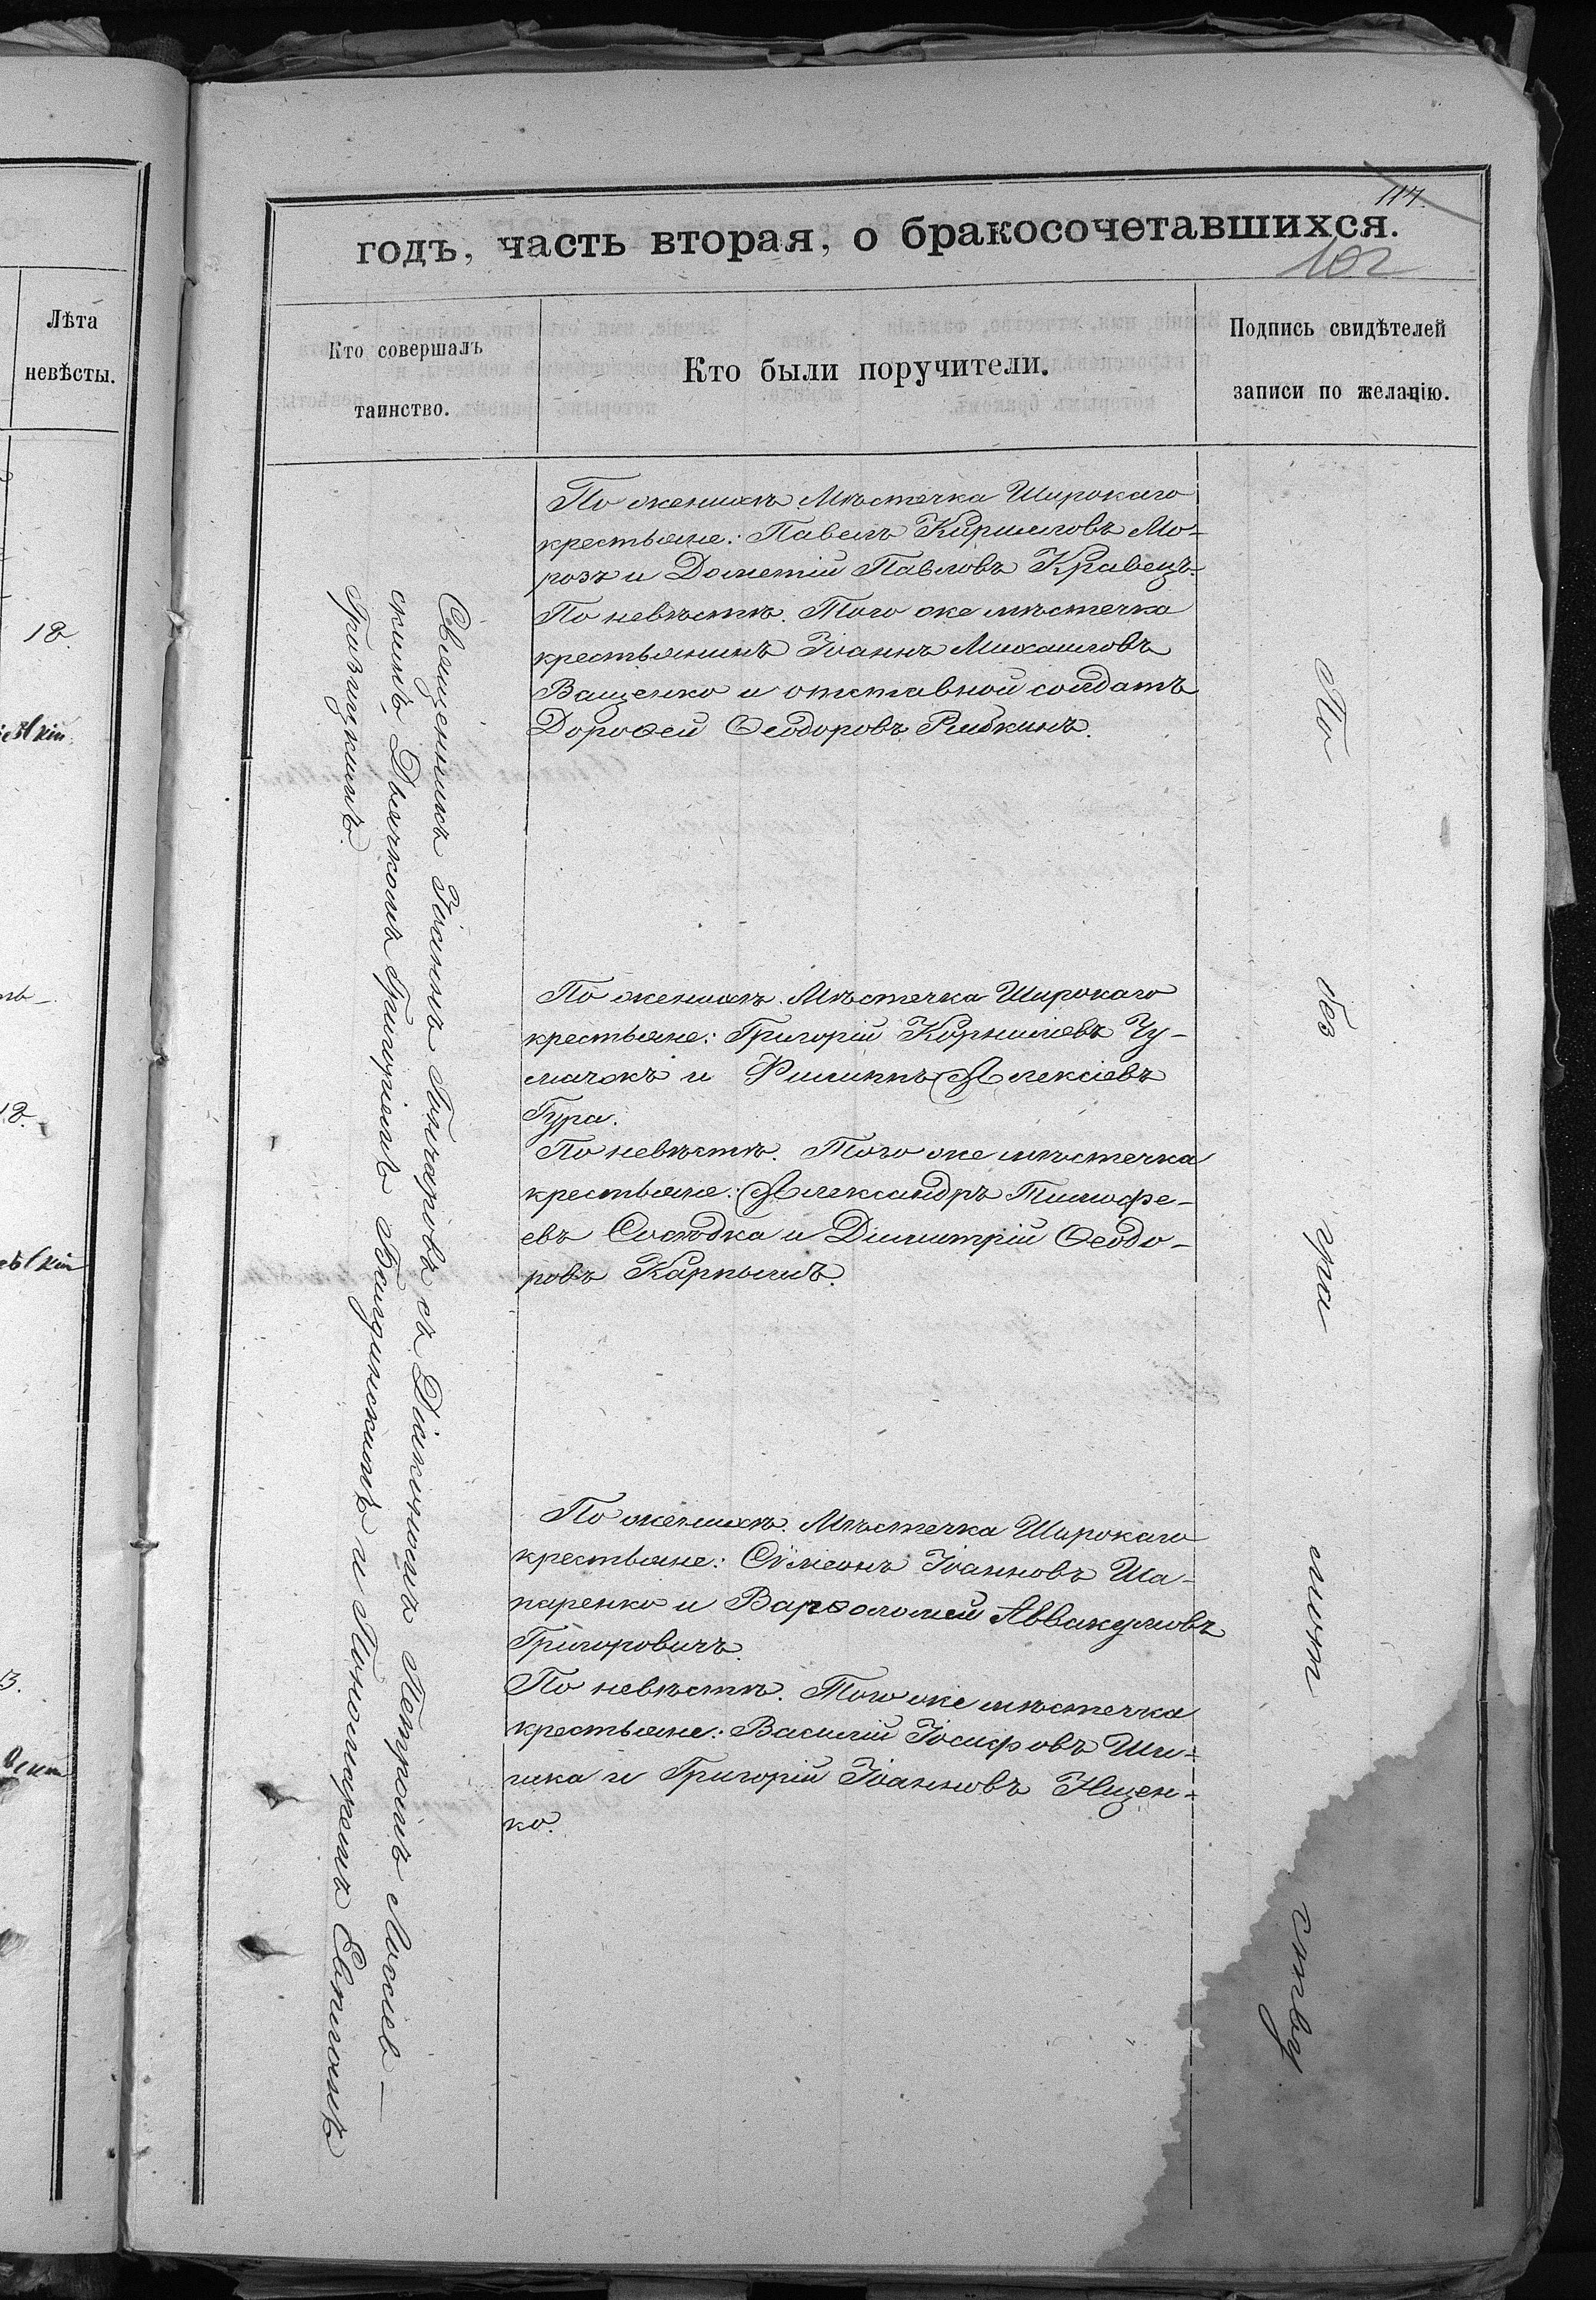 114.
годъ, часть вторая, о бракосочетавшихся.
102
Лѣта
невѣсты.
Кто совершалъ
таинство.
Кто были поручители.
Подпись свидѣтелей
записи по желанію.
18.
Священникъ Іоаннъ съ Діакономъ Петромъ Мосіев-
скимъ, Дьячкомъ Григоріемъ и Пономаремъ
По женихѣ. Мѣстечка Широкаго
крестьяне: Павелъ Кирилловъ Мо-
розъ и Дометій Павловъ Кравецъ.
По невѣстѣ. Того же мѣстечка
крестьянинъ Іоаннъ Михаиловъ
Ващенко и отставной солдатъ
Дороѳей Ѳеодоровъ Рибкинъ.
По женихѣ. Мѣстечка Широкаго
крестьяне: Григорій Корниліевъ Чу-
мачокъ и Филиппъ Алексіевъ
Гура.
По невѣстѣ. Того же мѣстечка
крестьяне: Александръ Тимофе-
евъ Сосѣдка и Димитрій Ѳеодо-
ровъ Карпылъ.
По женихѣ. Мѣстечка Широкаго
крестьяне: Сѵмеонъ Іоанновъ Ша-
паренко и Варѳоломей Аввакумовъ
Григоровичъ.
По невѣстѣ. Того же мѣстечка
крестьяне: Василій Іосифовъ Ши-
шка и Григорій Іоанновъ Ищен-
ко.
По
без
гра
мот
ству